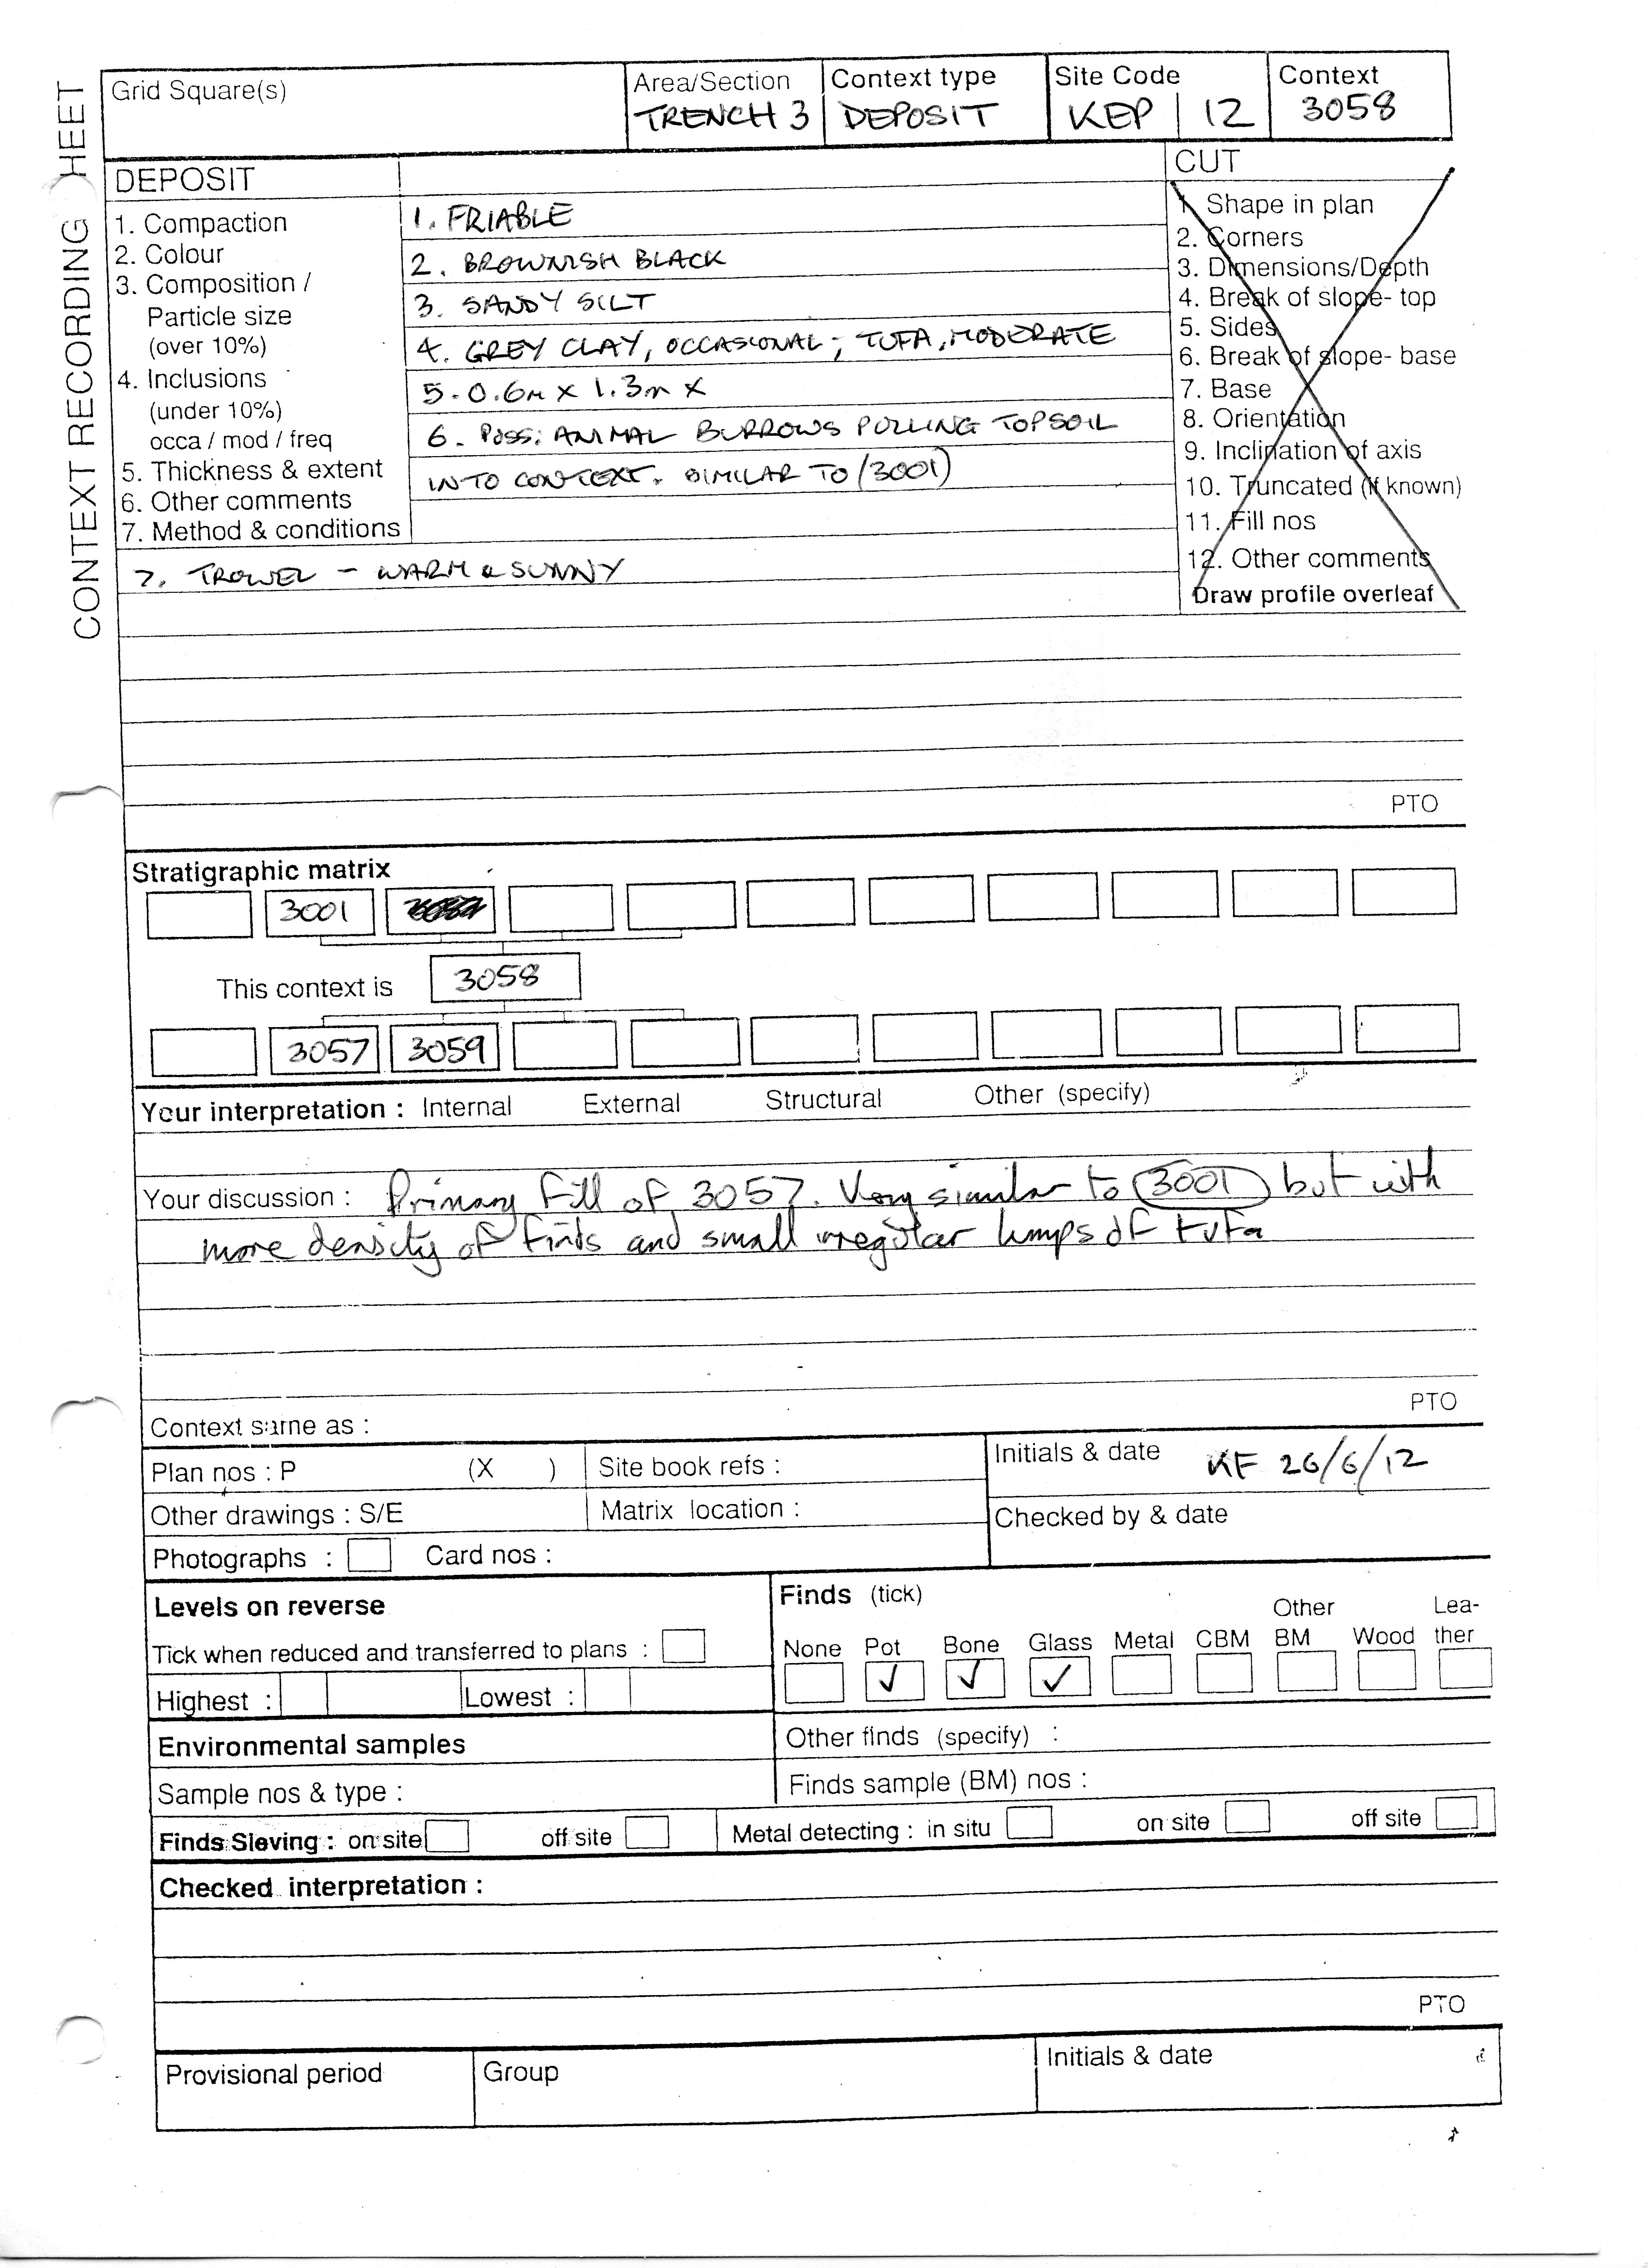 CONTEXT RECORDING HEET
Grid Square(s)
Area/Section
TRENCH 3
Context type
DEPOSIT
Site Code
KEP 12
Context
3058
DEPOSIT
1. Compaction
2. Colour
3. Composition /
Particle size
(over 10%)
4. Inclusions
(under 10%)
occa / mod / freq
5. Thickness & extent
6. Other comments
7. Method & conditions
1. FRIABLE
2. BROWNISH BLACK
3. SANDY SILT
4. GREY CLAY, OCCASIONAL; TUFA, MODERATE
5. 0.6m x 1.3m x
6. POSS. ANIMAL BURROWS PULLING TOPSOIL
INTO CONTEXT. SIMILAR TO (3001)
7. TROWEL - WARM & SUNNY
CUT
1. Shape in plan
2. Corners
3. Dimensions/Depth
4. Break of slope- top
5. Sides
6. Break of slope- base
7. Base
8. Orientation
9. Inclination of axis
10. Truncated (if known)
11. Fill nos
12. Other comments
Draw profile overleaf
PTO
Stratigraphic matrix
3001
This context is 3058
3057 3059
Your interpretation : Internal External Structural Other (specify)
Your discussion : Primary fill of 3057. Very similar to (3001) but with
more density of finds and small irregular lumps of tufa
PTO
Context same as :
Plan nos : P (X )
Site book refs :
Initials & date KF 26/6/12
Other drawings : S/E
Matrix location :
Checked by & date
Photographs : Card nos :
Levels on reverse
Tick when reduced and transferred to plans :
Highest : Lowest :
Finds (tick)
None Pot Bone Glass Metal CBM Other BM Wood Lea-ther
✓ ✓ ✓
Environmental samples
Other finds (specify) :
Sample nos & type :
Finds sample (BM) nos :
Finds Sieving : on site off site
Metal detecting : in situ on site off site
Checked interpretation :
PTO
Provisional period
Group
Initials & date